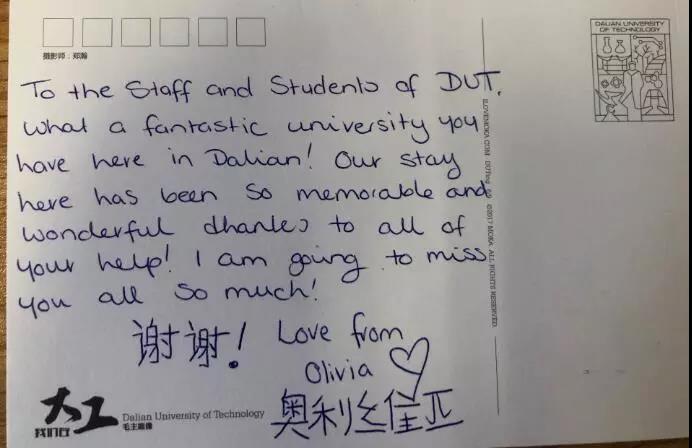 摄影师：郑瀚
DALIAN UNIVERSITY
OF TECHNOLOGY
To the Staff and Students of DUT,
What a fantastic university you
have here in Dalian! Our stay
here has been so memorable and
wonderful thanks to all of
your help! I am going to miss
you all so much!
谢谢! Love from
Olivia ♡
奥利丝佳亚
大工
我们在
Dalian University of Technology
毛主席像
ILOVEMOKA.COM ©2017 MOKA. ALL RIGHTS RESERVED.